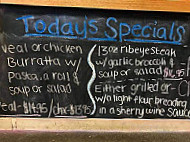 Todays Specials
Veal or chicken
Burratta w/
Pasta, a roll &
soup or salad
Veal-$14.95/chix-$13.95
13oz ribeye steak
w/garlic broccoli &
soup or salad
Either grilled or
w/a light flour breading
in a sherry wine sauce